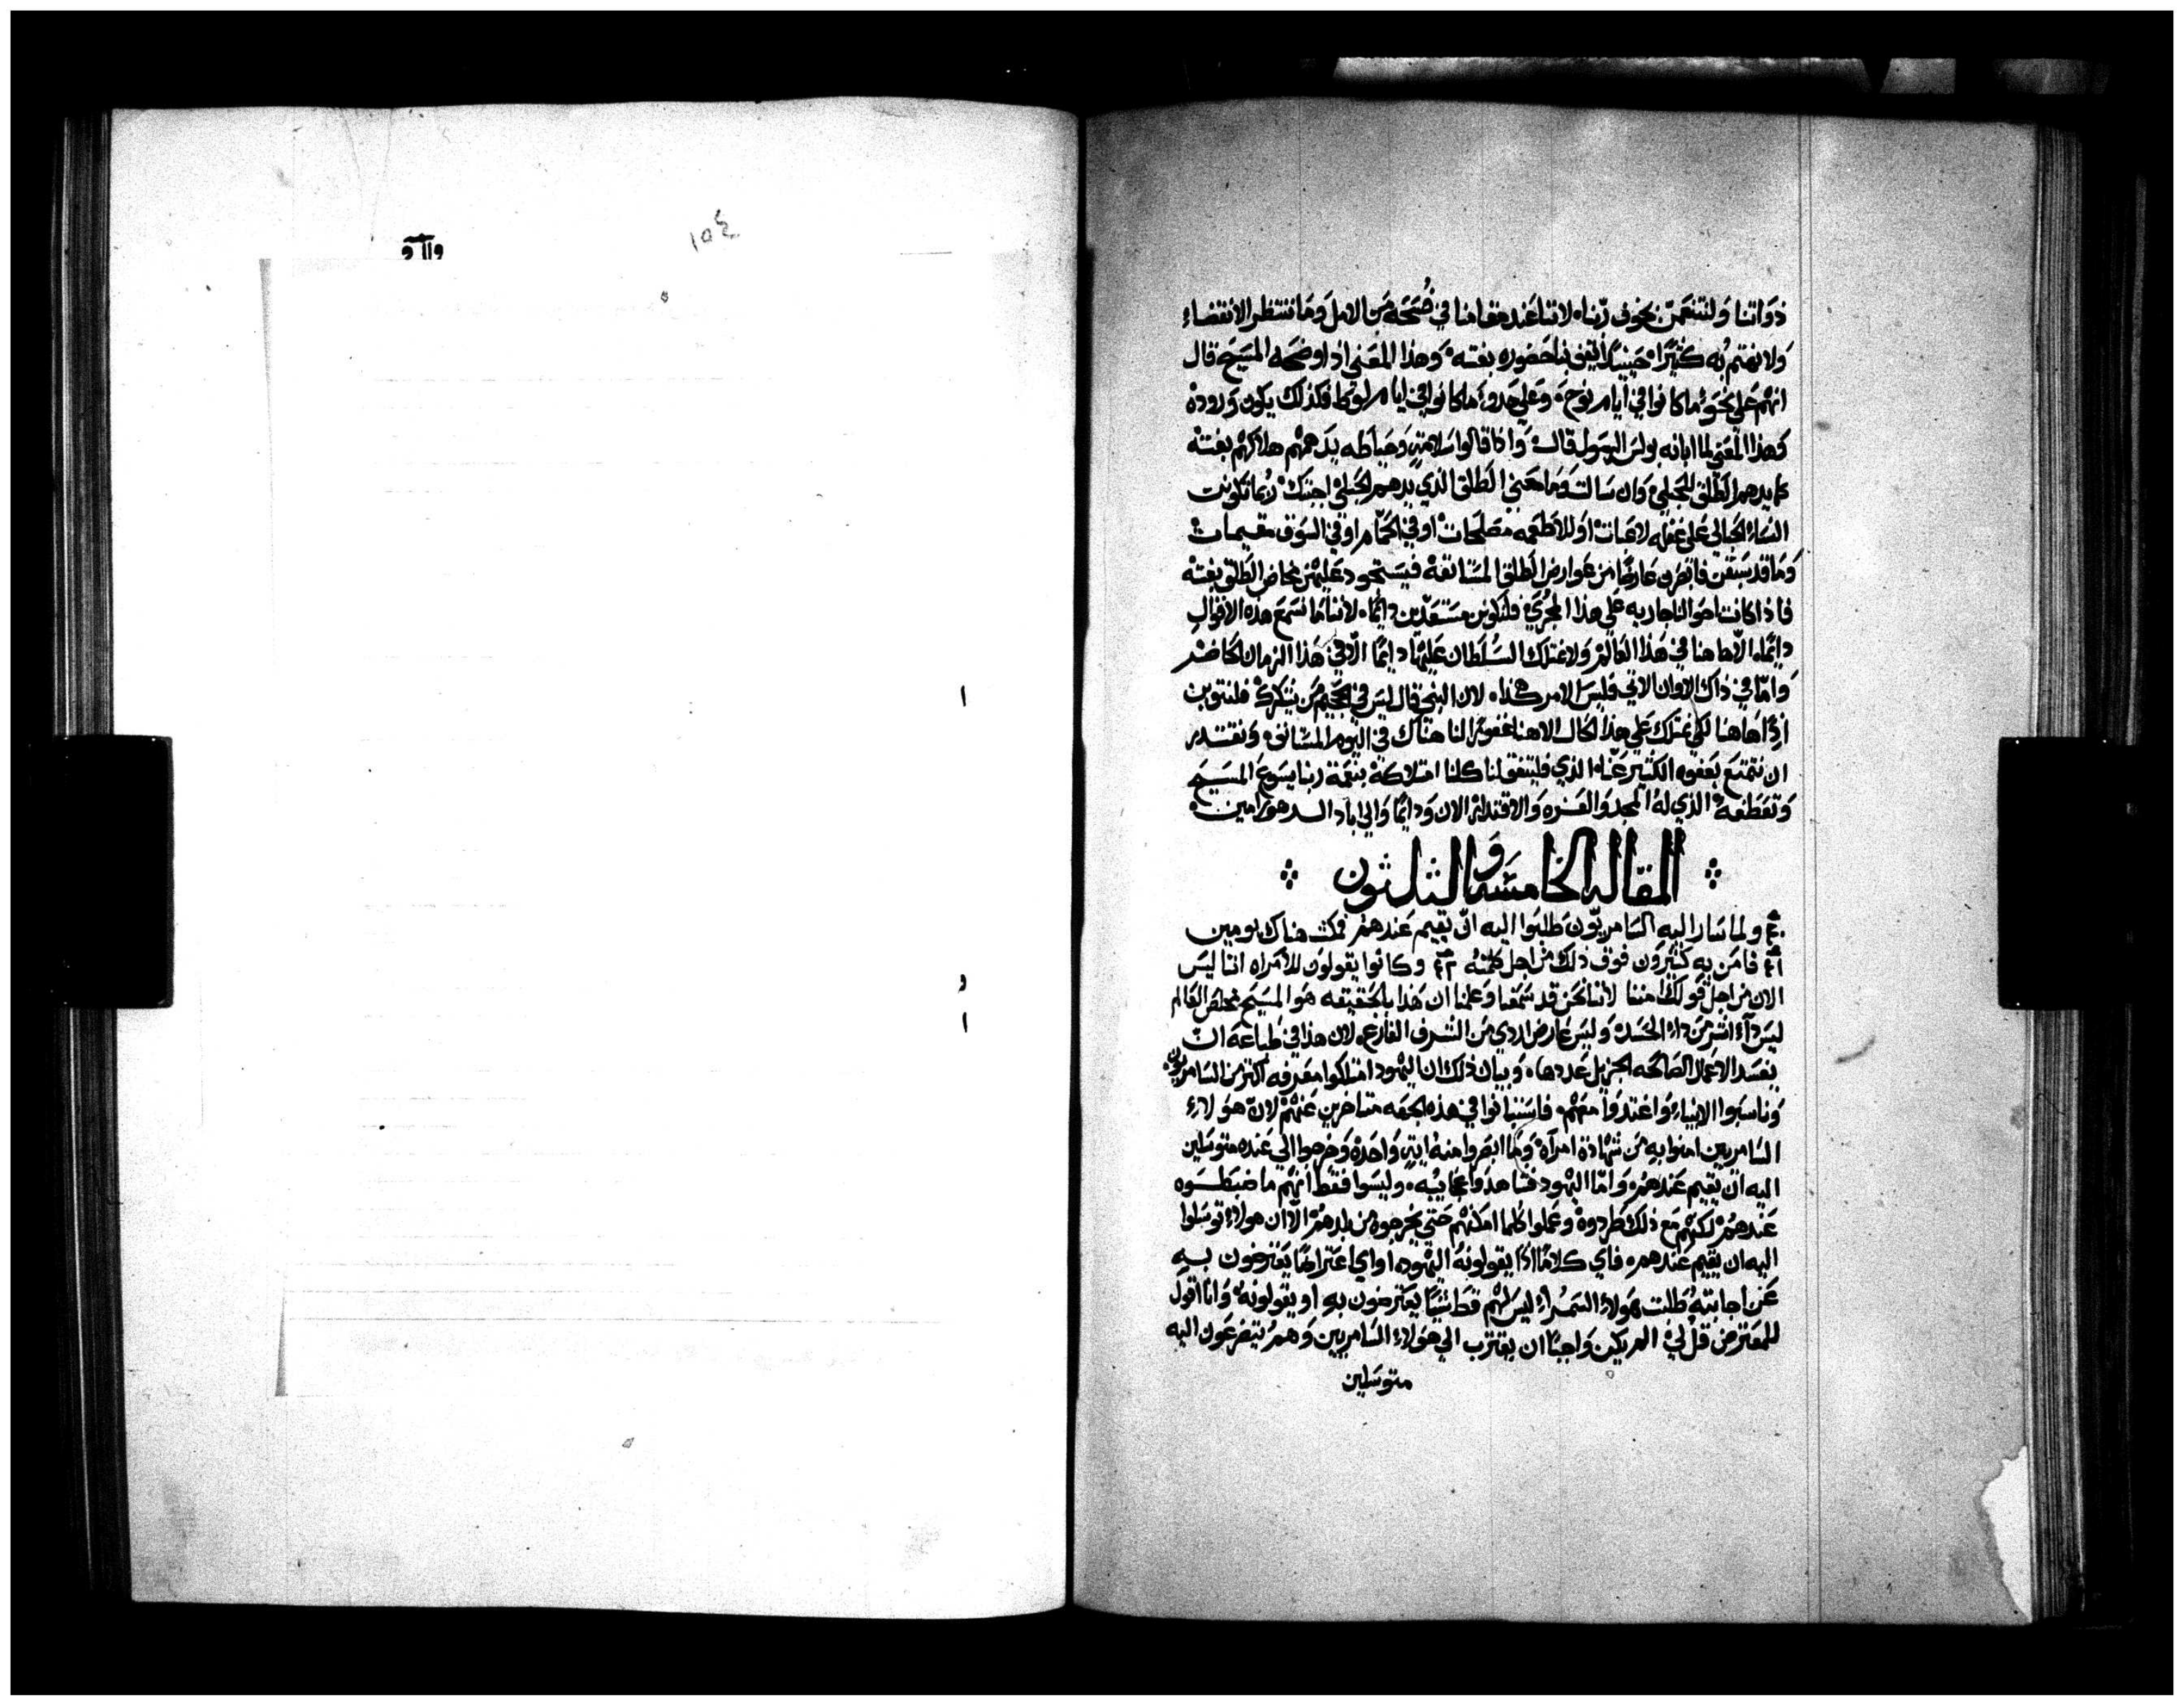 ذواتنا ولنتنعمن بخوف ربنا، لاننا عند مقامنا في فسحة من الامل وما ننتظر الانقضاء
ولا نهتم به كثيرًا، حينيذ يتفق لنا حضوره بغته، وهذا المعني اذ اوضحه المسيح قال
انهم علي نحو ما كانوا في ايام نوح، وعلي حذو ما كانوا في ايام لوط فكذلك يكون وروده
كهذا المعني لما ابانه بولس الرسول قال، واذا قالوا سلامة وحياطه يدهمهم هلاكهم بغتة
كما يدهم الطلق للحبلي، وان سالت وما معني الطلق الذي يدهم الحبلي اجبتك ربما تكونت
النساء الحبالي علي غفله لاعبات او للاطعمه مصلحات او في الحمام او في السوق مقيمات
وما قد سبقن فابصرن عارضًا من عوارض الطلق المستانفة فيستحوذ عليهن مخاض الطلق بغتة
فاذا كانت احوالنا جاريه علي هذا المجري فلنكونن مستعدين دايمًا، لاننا ما نسمع هذه الاقوال
دايمًا، الا هاهنا في هذا العالم، ولا نمتلك السلطان عليها دايمًا الا في هذا الزمان الحاضر
واما في ذاك الاوان الاتي فليس الامر هكذا، لان النبي قال ليس في الجحيم من يشكرك فلنتوبن
اذًا هاهنا لكي نمتلك علي هذا الحال الاهنا غفورًا لنا هناك في اليوم المستانف، ونقتدر
ان نتمتع بعفوه الكثير عنا، الذي فليتفق لنا كلنا امتلاكه بنعمة ربنا يسوع المسيح
وتعطفه، الذي له المجد والعزه والاقتدار الان ودايمًا والي اباد الدهور امين
المقاله الخامسه والثلثون
٤٠ ولما سار اليه السامريون طلبوا اليه ان يقيم عندهم فمكث هناك يومين
٤١ فامن به كثيرون فوق ذلك من اجل كلمته ٤٢ وكانوا يقولون للامراه اننا ليس
الان من اجل قولك امنا لاننا نحن قد سمعنا وعلمنا ان هذا بالحقيقه هو المسيح مخلص العالم
ليس داء اشر من داء الحسد، وليس عارض اردي من الشرف الفارغ، لان هذا في طباعه ان
يفسد الاعمال الصالحه الجزيل عددها، وبيان ذلك ان اليهود امتلكوا معرفه اكثر من السامريون،
وناسبوا الانبياء واغتدوا معهم، فاستبانوا في هذه الجهه متاخرين عنهم لان هولاء
السامريين امنوا به من شهادة امراة، وما ابصروا منه اية واحدة وخرجوا الي عنده متوسلين
اليه ان يقيم عندهم، واما اليهود فشاهدوا عجايبه، وليسوا فقط انهم ما ضبطوه
عندهم لكنهم مع ذلك طردوه وعملوا كلما امكنهم حتي يخرجوه من بلدهم الا ان هولاء توسلوا
اليه ان يقيم عندهم، فاي كلامًا اذًا يقولونه اليهود، او اي اعتراضًا يعترضون به
عن اجابته طلبت هولاء السمراء ليس لهم قط شيًا يعترضون به او يقولونه، وانا اقول
للمعترض قل لي الم يكن واجبًا ان يقترب الي هولاء السامريين وهم يتضرعون اليه
متوسلين
١٥٤